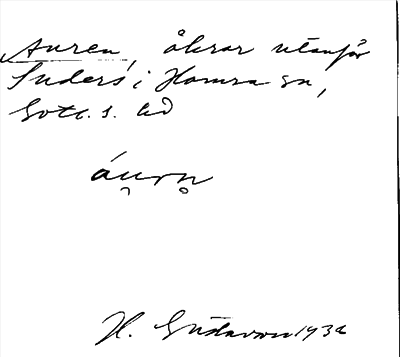 Auren, åkrar utanför
Suders i Hamra sn,
Gotl. s. hd
áurn
H. Gustavson 1932